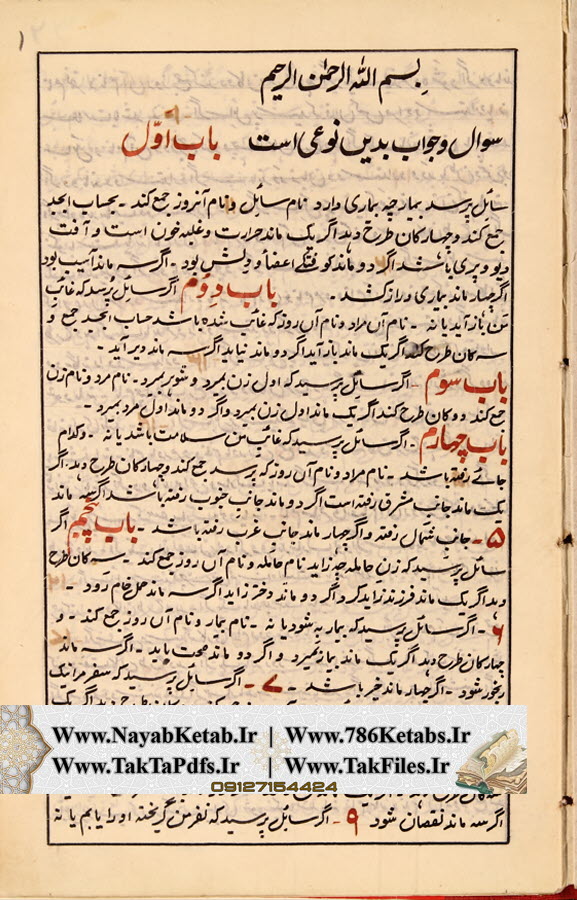 بسم الله الرحمٰن الرحیم
سوال وجواب بدیں نوعی است باب اوّل
سائل پرسد بیمار چه بیماری دارد نام سائل و نام آنروز جمع کند - بحساب ابجد
جمع کند و چهارکان طرح دهد اگر یک ماند حرارت و غلبه خون است و آفت
دیو و پری باشد اگر دو ماند کوفتگے اعضا و دلش بود - اگر سه ماند آسیب بود
اگر چهار ماند بیماری دراز کشد - باب دوم اگر سائل پرسد که غائب
من باز آید یا نه - نام آں مراد و نام آں روز که غائب شده باشد حساب ابجد جمع و
سه کان طرح کند اگر یک ماند باز آید اگر دو ماند نیاید اگر سه ماند دیر آید -
باب سوم - اگر سائل پرسید که اول زن بمیرد و شوہر بمیرد - نام مرد و نام زن
جمع کند دوکان طرح کند اگر یک ماند اول زن بمیرد واگر دو ماند اول مرد بمیرد -
باب چهارم - اگر سائل پرسید که غائب من سلامت باشد یا نه - وکدام
جائے رفته باشد - نام مراد و نام آں روز که پرسد جمع کند و چهارکان طرح دهد اگر
یک ماند جانب مشرق رفته است اگر دو ماند جانب جنوب رفته باشد اگر سه ماند
۵ - جانب شمال رفته واگر چهار ماند جانب غرب رفته باشد - باب پنجم اگر
سائل پرسید که زن حامله چه زاید نام حامله و نام آں روز جمع کند - سه کان طرح
دهد اگر یک ماند فرزند زاید کرد اگر دو ماند دختر زاید اگر سه ماند حمل خام رود -
۶ - اگر سائل پرسید که بیمار به شود یا نه - نام بیمار و نام آں روز جمع کند - و
چهارکان طرح دهد اگر یک ماند بیمار نمیرد و اگر دو ماند صحت یابد - اگر سه ماند
رنجور شود - اگر چهار ماند خیر باشد - ۷ - اگر سائل پرسید که سفر مرا نیک
Www.NayabKetab.Ir | Www.786Ketabs.Ir
Www.TakTaPdfs.Ir | Www.TakFiles.Ir
09127154424
اگر سه ماند نقصان شود ۹ - اگر سائل پرسید که نفر من گریخته او را یابم یا نه